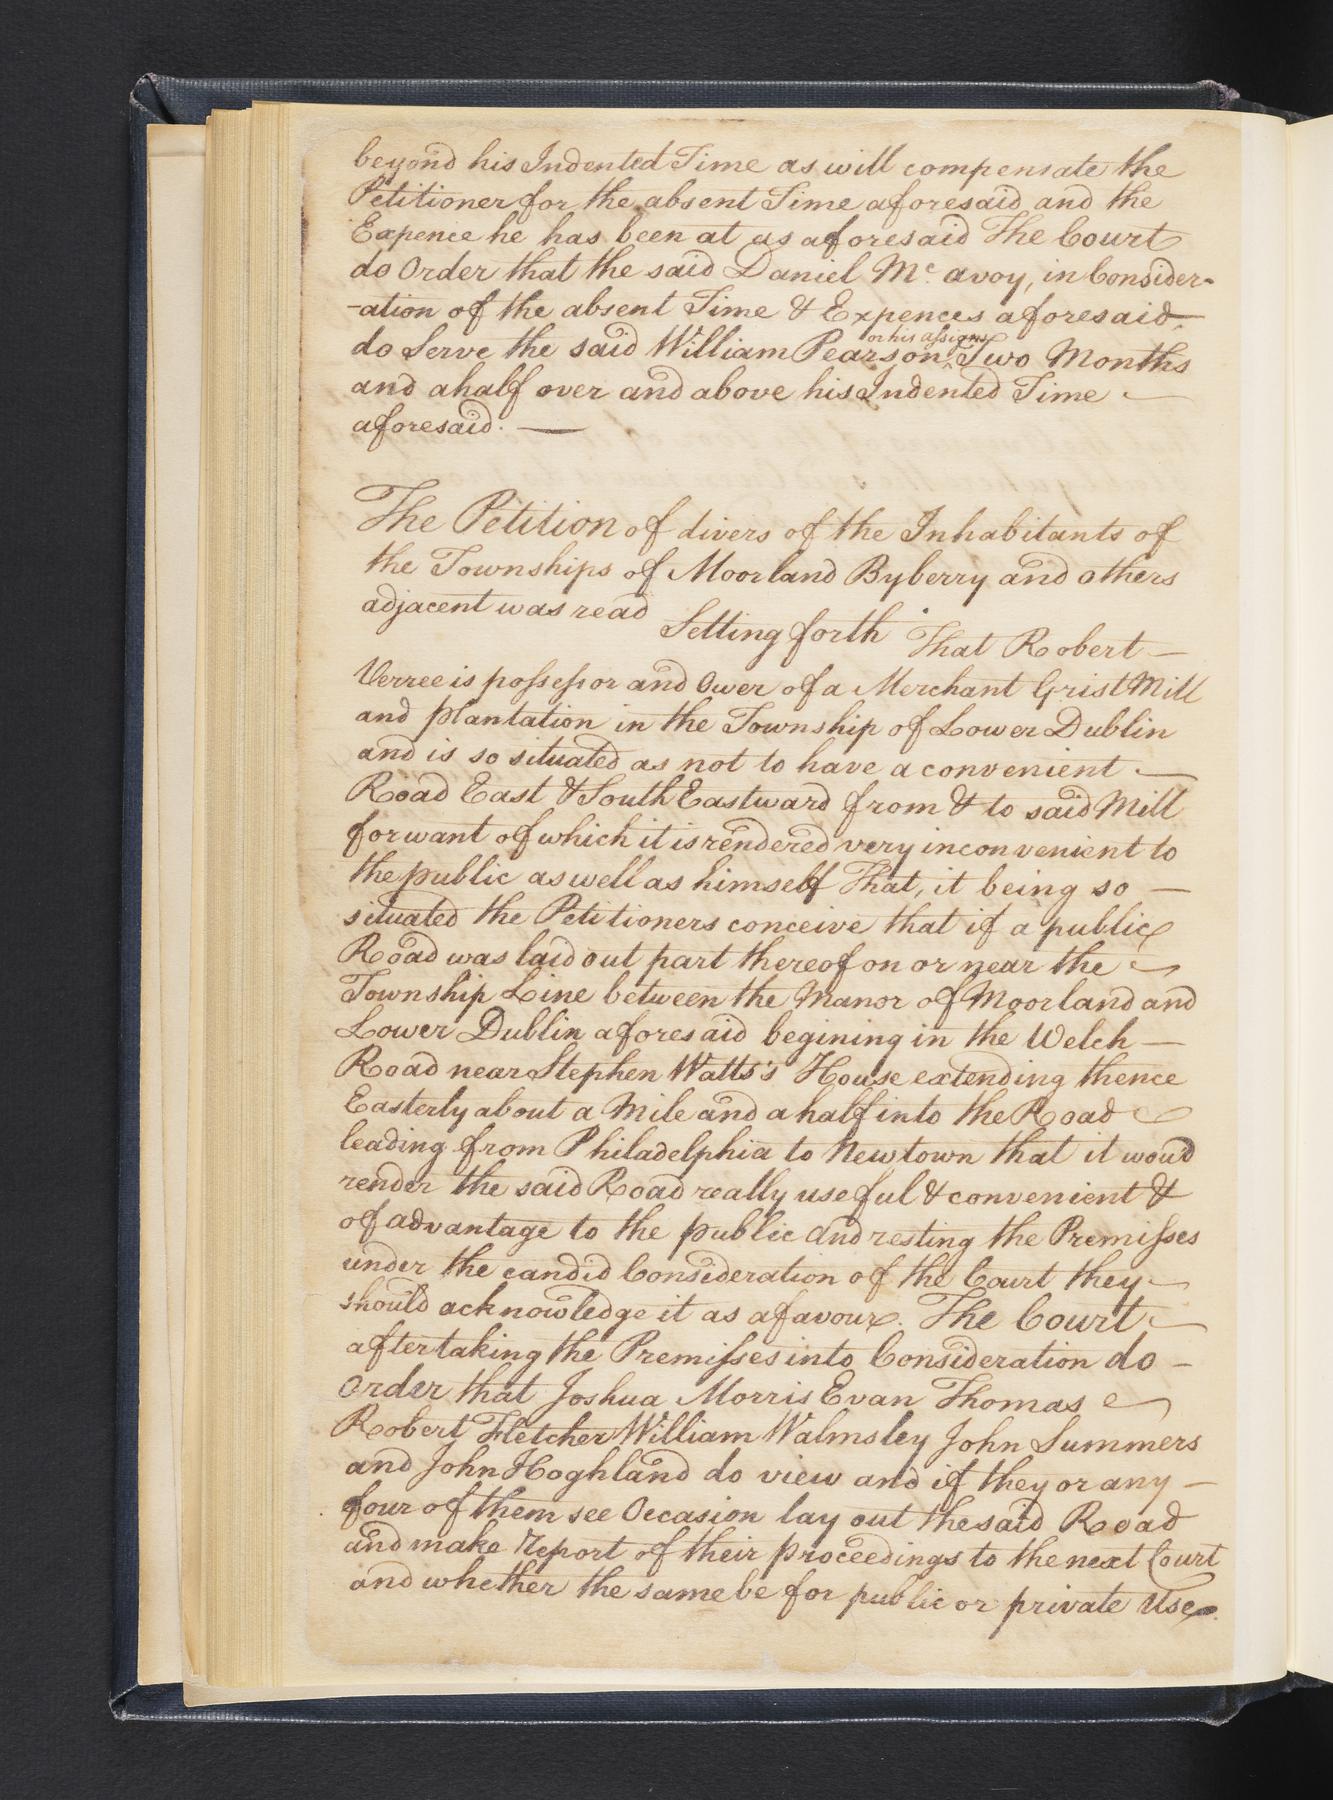 beyond his Indented Time as will compensate the
Petitioner for the absent Time aforesaid and the
Expence he has been at as aforesaid The Court
do Order that the said Daniel Mc. avoy, in Consider-
-ation of the absent Time & Expences aforesaid
do Serve the said William Pearson ^or his assigns Two Months
and a half over and above his Indented Time
aforesaid. —
The Petition of divers of the Inhabitants of
the Townships of Moorland Byberry and others
adjacent was read Setting forth That Robert —
Verree is possessor and Ower of a Merchant Grist Mill
and plantation in the Township of Lower Dublin
and is so situated as not to have a convenient —
Road East & South Eastward from & to said Mill
for want of which it is rendered very inconvenient to
the public as well as himself That, it being so —
situated the Petitioners conceive that if a public
Road was laid out part thereof on or near the
Township Line between the Manor of Moorland and
Lower Dublin aforesaid begining in the Welch —
Road near Stephen Watts's House extending thence
Easterly about a Mile and a half into the Road
leading from Philadelphia to Newtown that it woud
render the said Road really useful & convenient &
of advantage to the public And resting the Premisses
under the candid Consideration of the Court they —
should acknowledge it as a favour. The Court —
after taking the Premisses into Consideration do —
Order that Joshua Morris Evan Thomas
Robert Fletcher William Walmsley John Summers
and John Hoghland do view and if they or any —
four of them see Occasion lay out the said Road
and make Report of their proceedings to the next Court
and whether the same be for public or private Use.